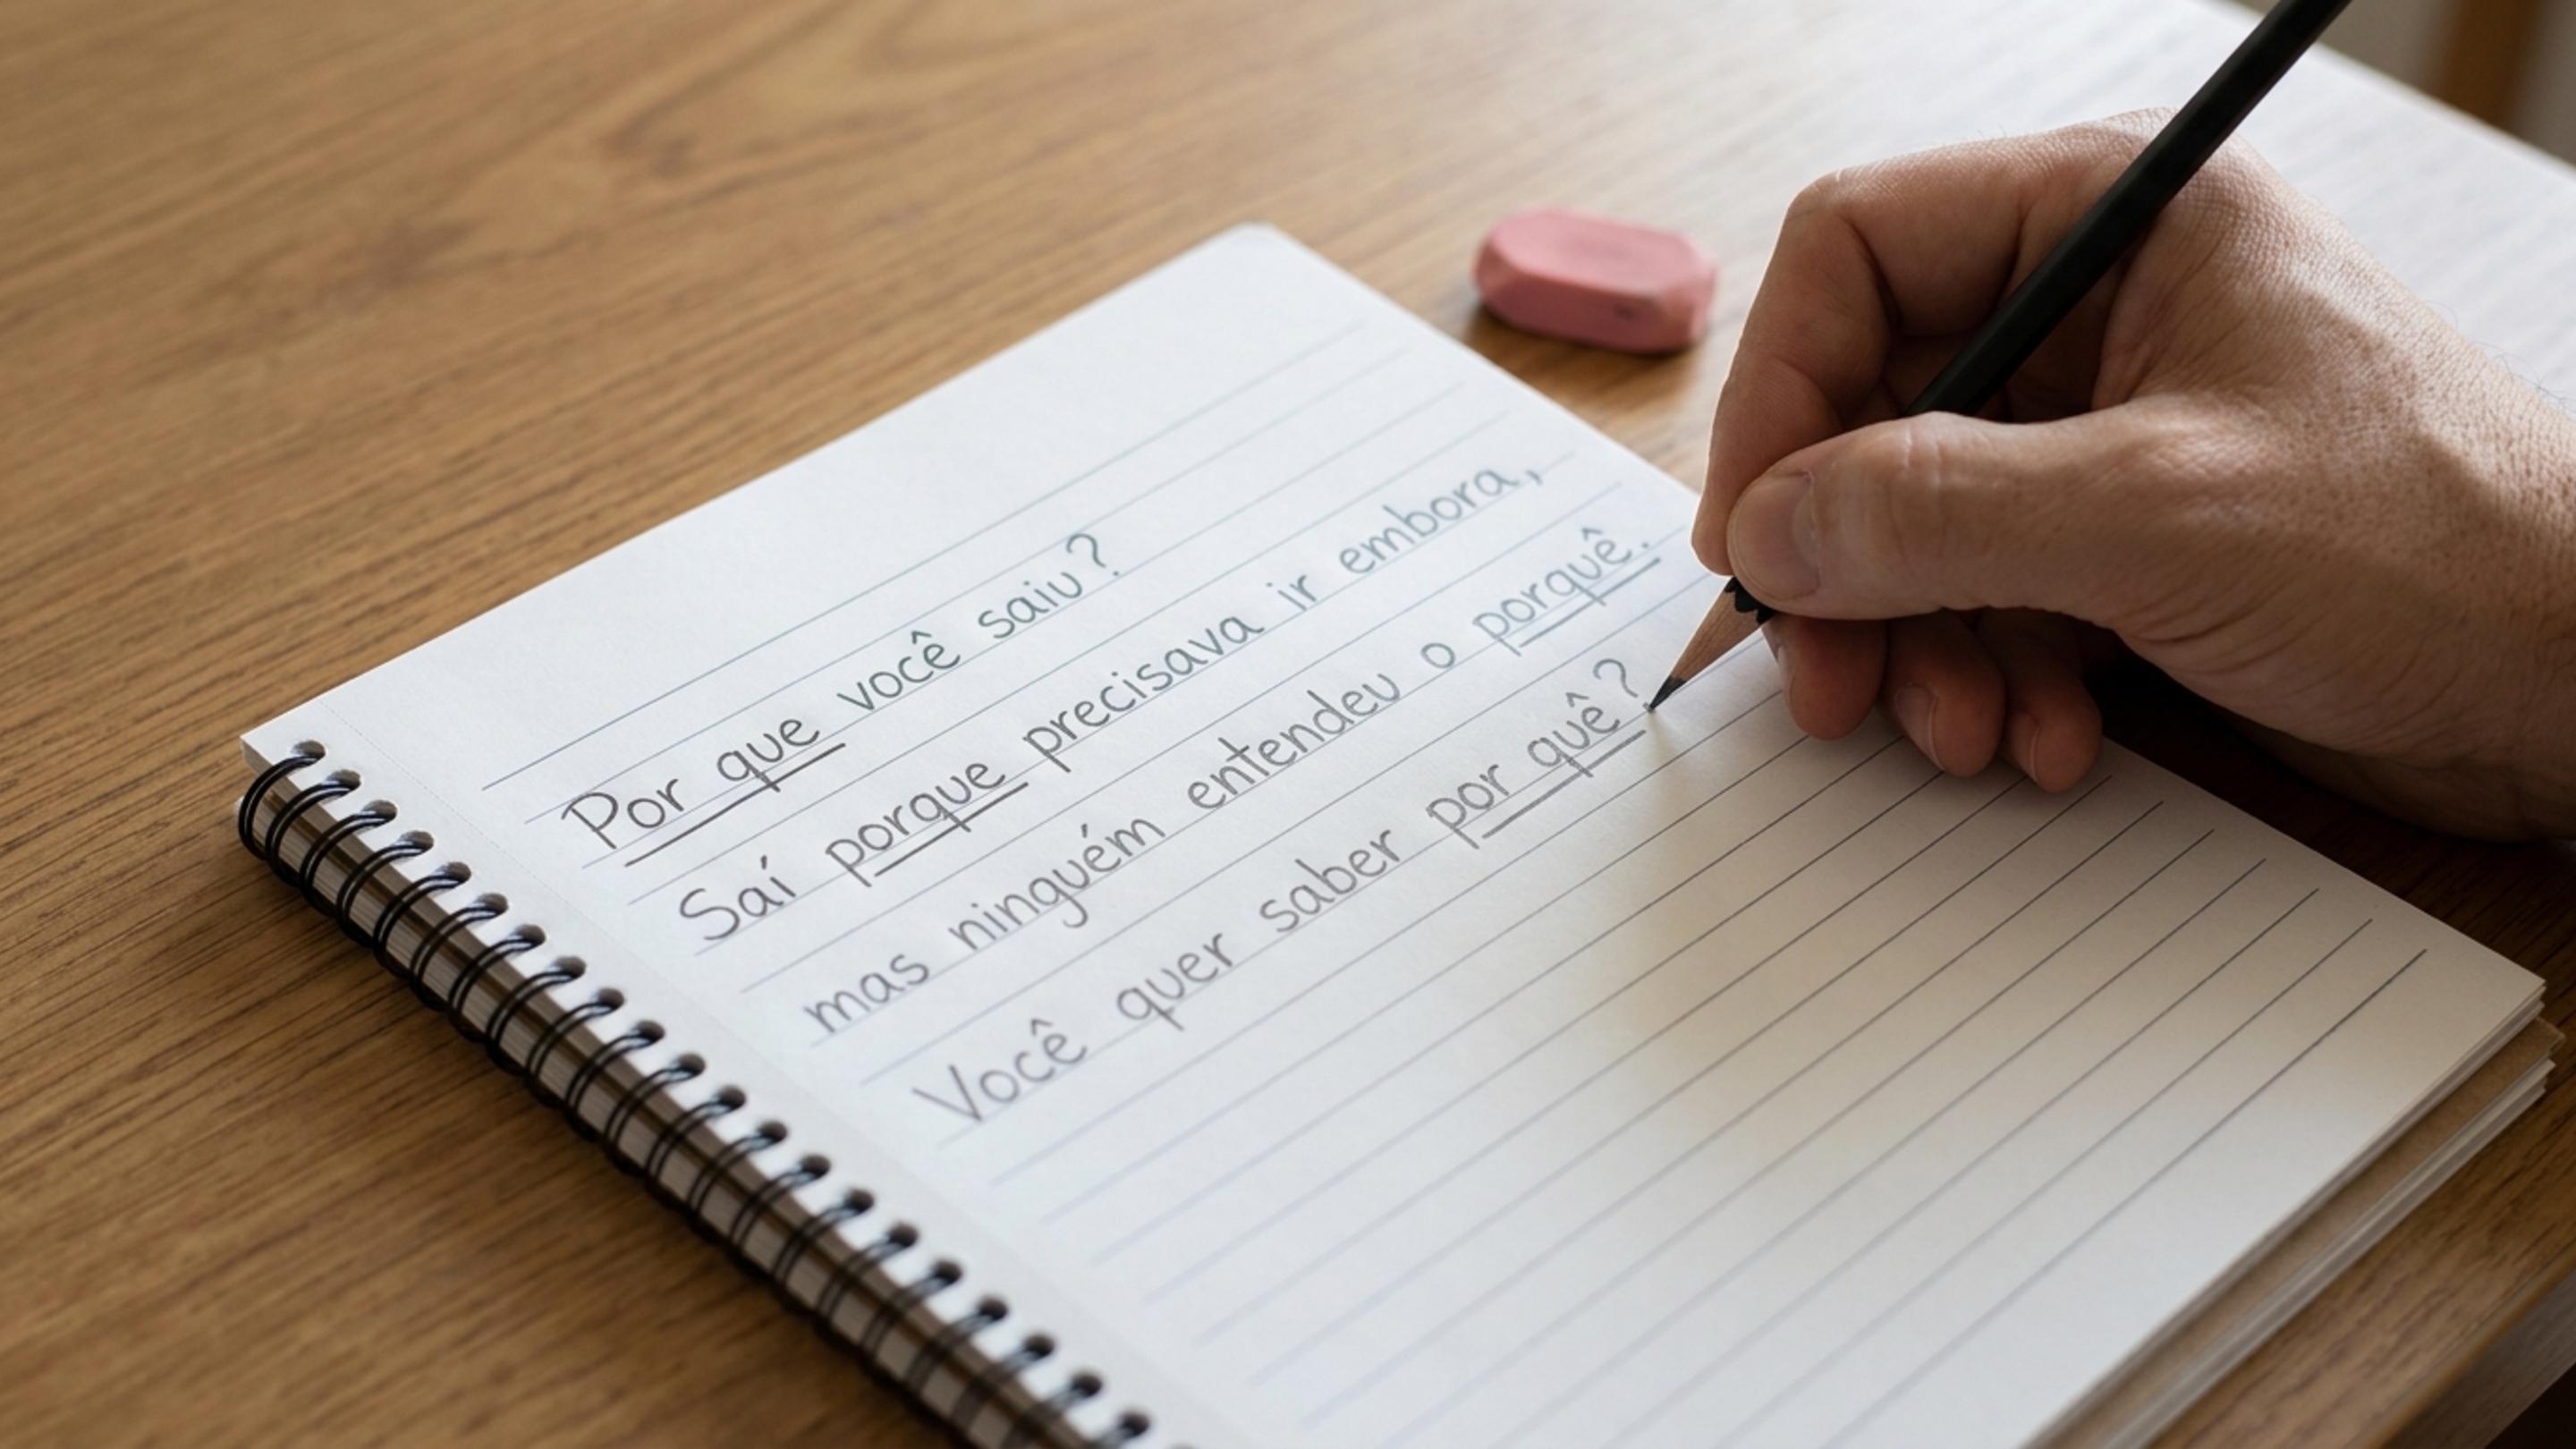 Por que você saiu?
Saí porque precisava ir embora,
mas ninguém entendeu o porquê.
Você quer saber por quê?